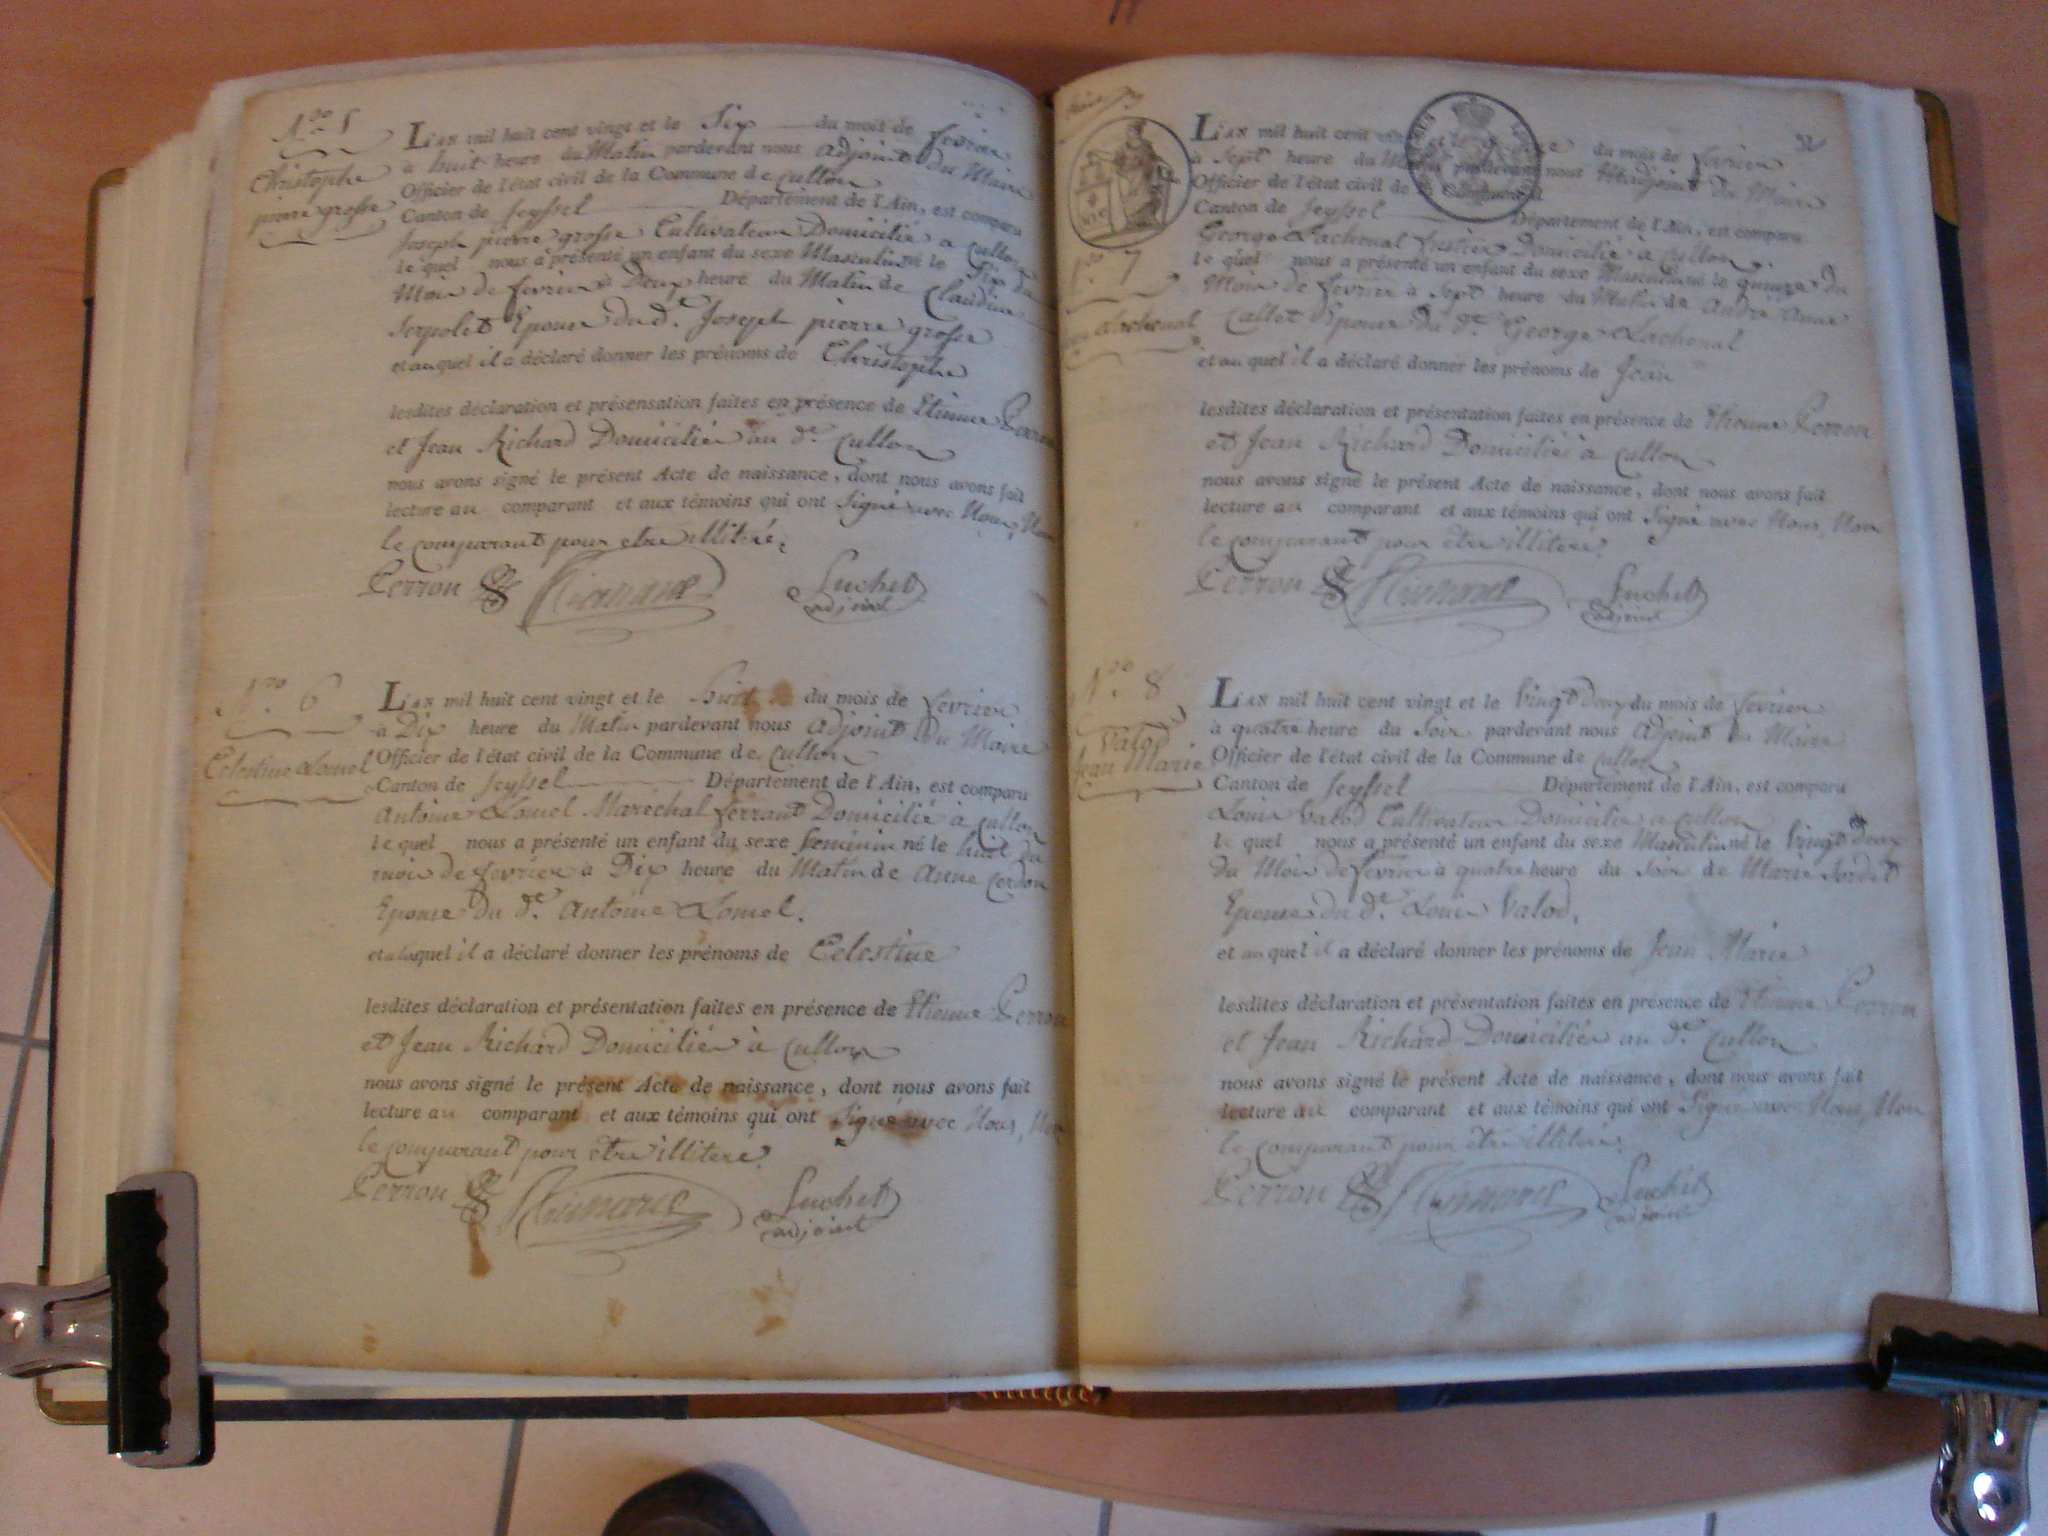 N.ro 5
Christophe
pierre grosse
L'AN mil huit cent vingt et le Six du mois de fevrier
à huit heure du Matin pardevant nous adjoint du Maire
Officier de l'état civil de la Commune de Culloz
Canton de Seyssel Département de l'Ain, est comparu
Joseph pierre grosse Cultivateur Domicilié a Culloz
lequel nous a présenté un enfant du sexe Masculin né le Six du
Mois de fevrier à Deux heure du Matin de Claudine
Serpolet Epouse du d.t Joseph pierre grosse
et auquel il a déclaré donner les prénoms de Christophe
lesdites déclaration et présensation faites en présence de Etienne Perron
et Jean Richard Domiciliés au d.t Culloz
nous avons signé le présent Acte de naissance, dont nous avons fait
lecture au comparant et aux témoins qui ont Signé avec Nous, Non
le comparant pour etre illitéré.
Perron Luchet
adjoint
N.ro 6
Celestine Lomel
L'AN mil huit cent vingt et le huit du mois de fevrier
à Dix heure du Matin pardevant nous adjoint du Maire
Officier de l'état civil de la Commune de Culloz
Canton de Seyssel Département de l'Ain, est comparu
Antoine Lomel Maréchal ferrant Domicilié à Culloz
lequel nous a présenté un enfant du sexe feminin né le huit du
mois de fevrier à Dix heure du Matin de Anne Cerdon
Epouse du d.t Antoine Lomel.
et a laquel il a déclaré donner les prénoms de Celestine
lesdites déclaration et présentation faites en présence de Etienne Perron
et Jean Richard Domiciliés à Culloz
nous avons signé le présent Acte de naissance, dont nous avons fait
lecture au comparant et aux témoins qui ont Signé avec Nous, Non
le comparant pour être illiteré.
Perron Luchet
adjoint
32
N.ro 7
Lachenal
L'AN mil huit cent vingt et le du mois de fevrier
à Sept heure du Matin pardevant nous adjoint du Maire
Officier de l'état civil de la Commune
Canton de Seyssel Département de l'Ain, est comparu
George Lachenal Domicilié à Culloz.
lequel nous a présenté un enfant du sexe Masculin né le quinze du
Mois de fevrier à Sept heure du Matin de André Anne
Callet Epouse du d.t George Lachenal
et auquel il a déclaré donner les prénoms de Jean
lesdites déclaration et présentation faites en présence de Etienne Perron
et Jean Richard Domiciliés à Culloz
nous avons signé le présent Acte de naissance, dont nous avons fait
lecture au comparant et aux témoins qui ont Signé avec Nous, Non
le comparant pour être illiteré.
Perron Luchet
adjoint
N.ro 8
Valod
Jean Marie
L'AN mil huit cent vingt et le Vingt Deux du mois de fevrier
à quatre heure du Soir pardevant nous adjoint du Maire
Officier de l'état civil de la Commune de Culloz
Canton de Seyssel Département de l'Ain, est comparu
Louis Valod Cultivateur Domicilié a Culloz
lequel nous a présenté un enfant du sexe Masculin né le Vingt Deux
du Mois de fevrier à quatre heure du Soir de Marie
Epouse du d.t Louis Valod.
et auquel il a déclaré donner les prénoms de Jean Marie
lesdites déclaration et présentation faites en présence de Etienne Perron
et Jean Richard Domiciliés au d.t Culloz
nous avons signé le présent Acte de naissance, dont nous avons fait
lecture au comparant et aux témoins qui ont Signé avec Nous, Non
le comparant pour être illiteré.
Perron Luchet
adjoint